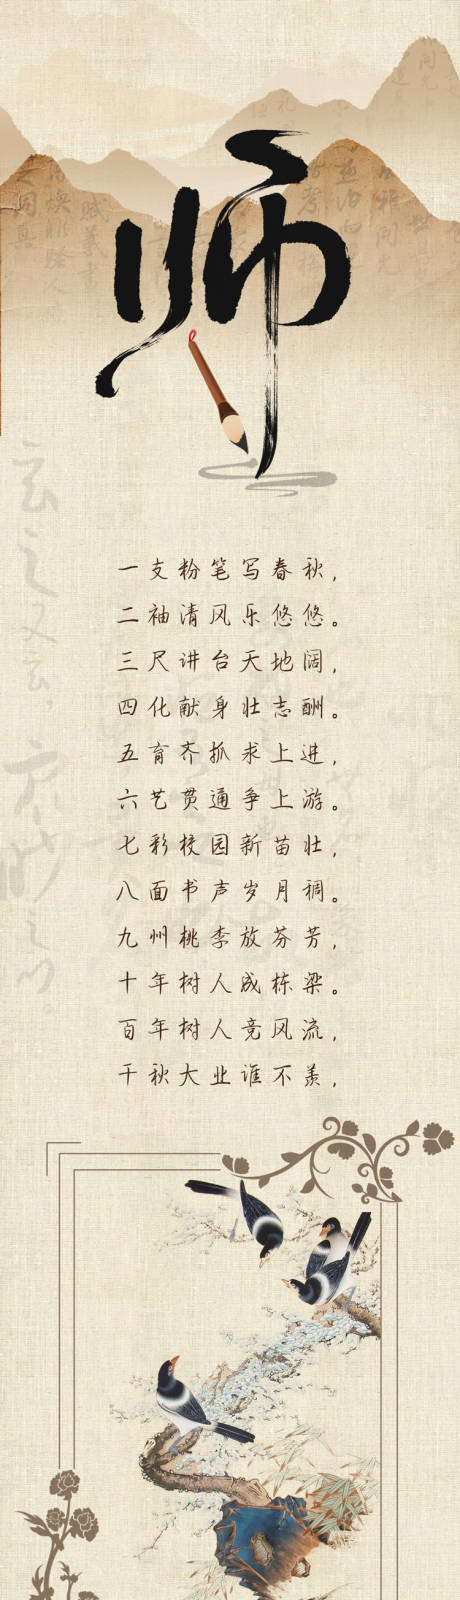 师
一支粉笔写春秋，
二袖清风乐悠悠。
三尺讲台天地阔，
四化献身壮志酬。
五育齐抓求上进，
六艺贯通争上游。
七彩校园新苗壮，
八面书声岁月稠。
九州桃李放芬芳，
十年树人成栋梁。
百年树人竞风流，
千秋大业谁不羡，
玄之又玄，众妙之门。